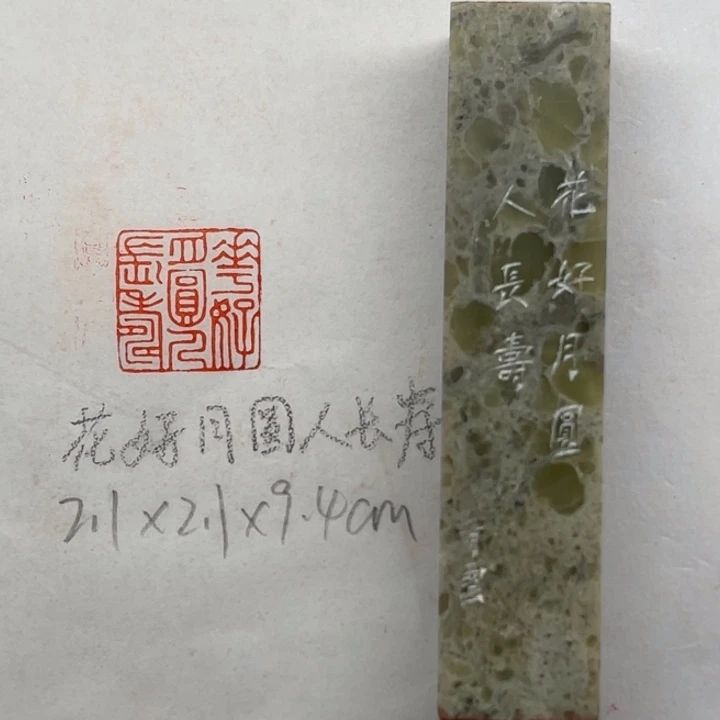 華好
月圓人
長壽
花好月圆人长寿
2.1×2.1×9.4cm
花好月圓
人長壽